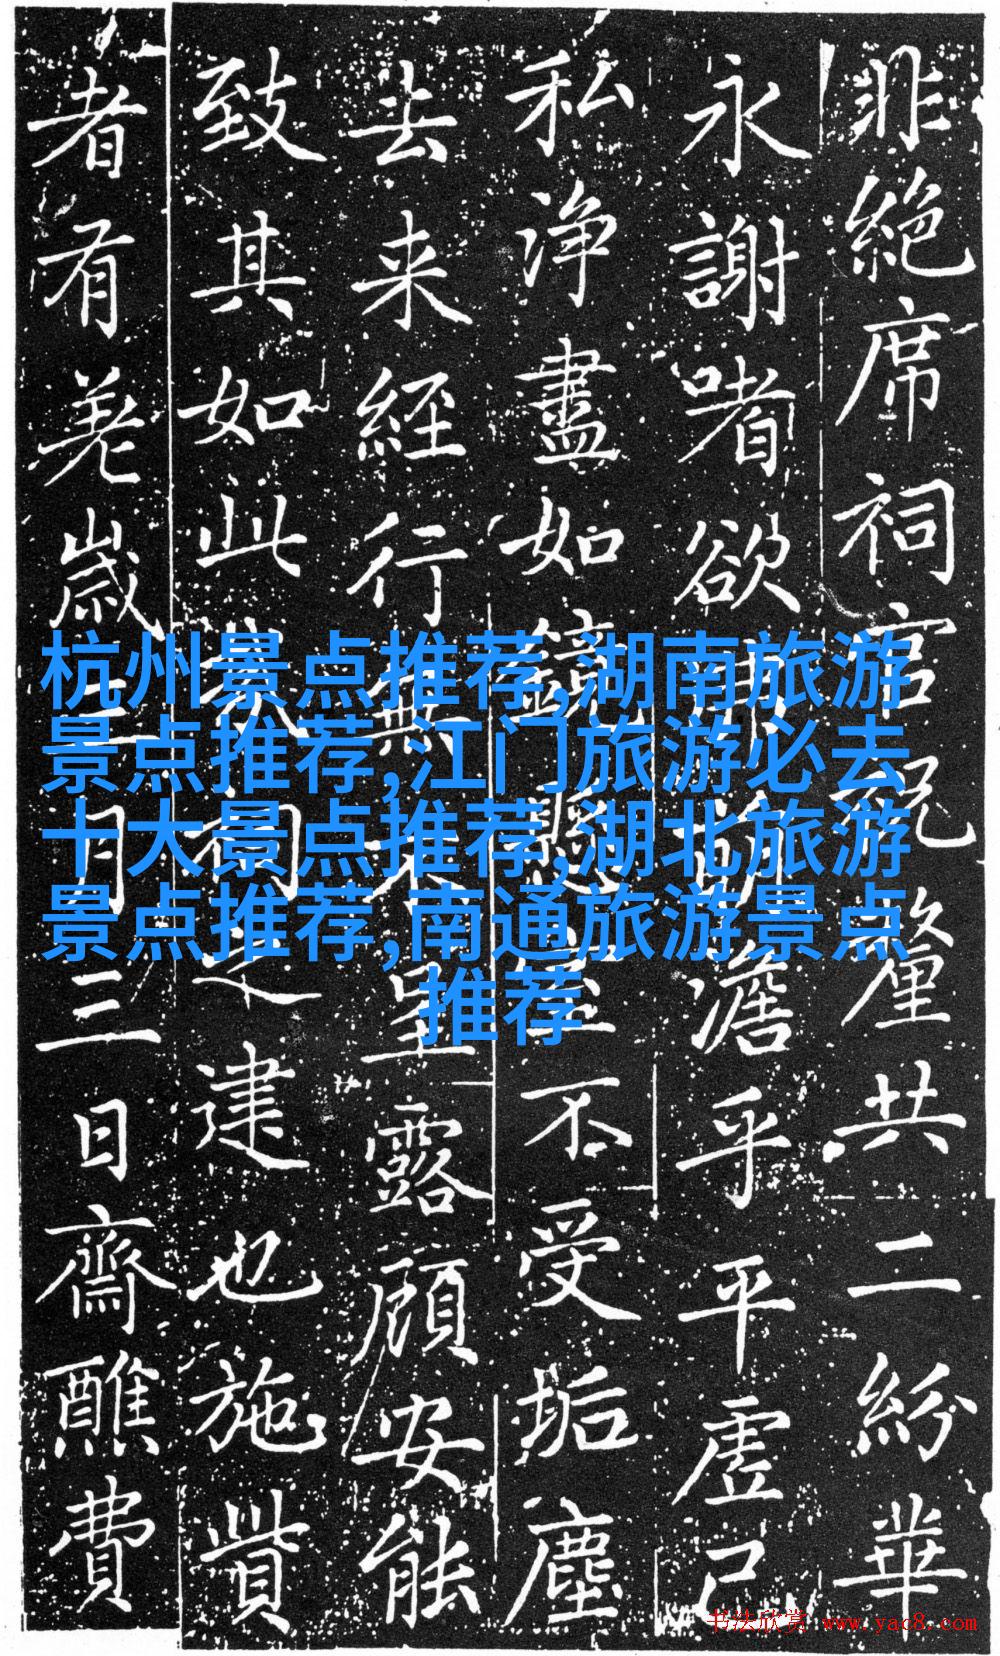 非絶席祠官祝釐共二紛華
永謝嗜欲澹乎平虛己
私浄盡如鏡不受垢塵
去来經行星露顧安能
致其如此祠之建也施貲
者有歲月三日齋醮費
杭州景点推荐,湖南旅游
景点推荐,江门旅游必去
十大景点推荐,湖北旅游
景点推荐,南通旅游景点
推荐
书法欣赏 www.yac8.com